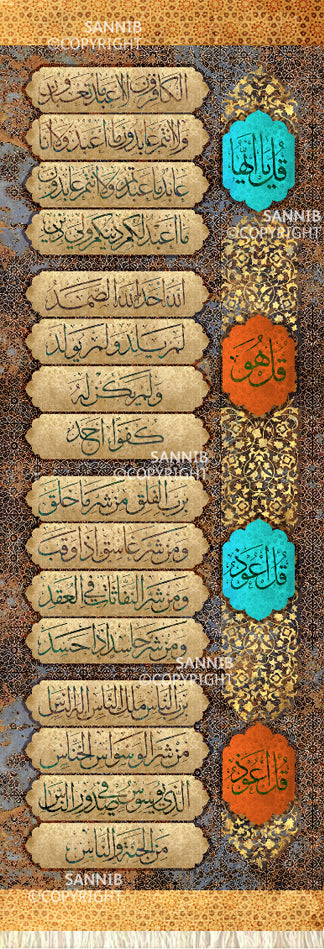 SANNIB
©COPYRIGHT
قل يا أيها
الكافرون لا أعبد ما تعبدون
ولا أنتم عابدون ما أعبد ولا أنا
عابد ما عبدتم ولا أنتم عابدون
ما أعبد لكم دينكم ولي دين
SANNIB
©COPYRIGHT
قل هو
الله أحد الله الصمد
لم يلد ولم يولد
ولم يكن له
كفوا أحد
SANNIB
©COPYRIGHT
قل أعوذ
برب الفلق من شر ما خلق
ومن شر غاسق إذا وقب
ومن شر النفاثات في العقد
ومن شر حاسد إذا حسد
SANNIB
©COPYRIGHT
قل أعوذ
برب الناس ملك الناس إله الناس
من شر الوسواس الخناس
الذي يوسوس في صدور الناس
من الجنة والناس
SANNIB
©COPYRIGHT